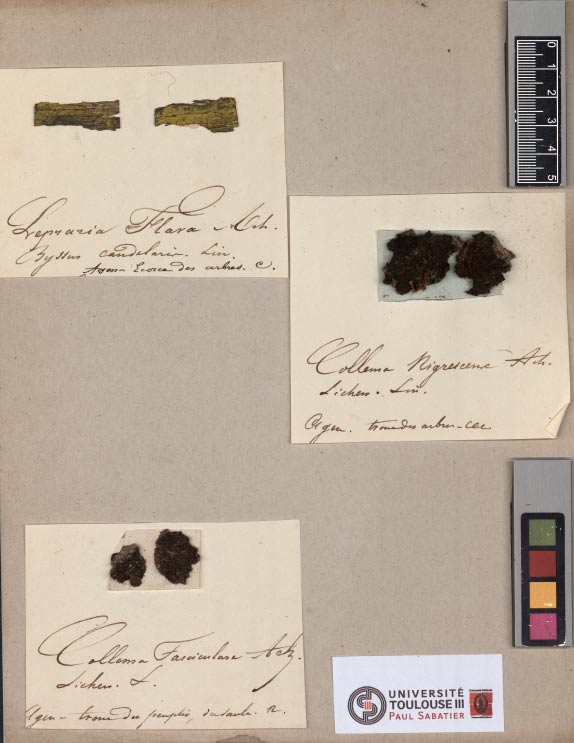 0
1
2
3
4
5
Lepraria Flava Ach.
Byssus candelaris. Lin.
Ecorce des arbres. C.
Collema Nigrescens Ach.
Lichen. Lin.
Agen. tronc des arbres - CCC
Collema Fasciculare Ach.
Lichen. L.
Agen - tronc des peupliers, du saule. R.
UNIVERSITÉ
TOULOUSE III
PAUL SABATIER